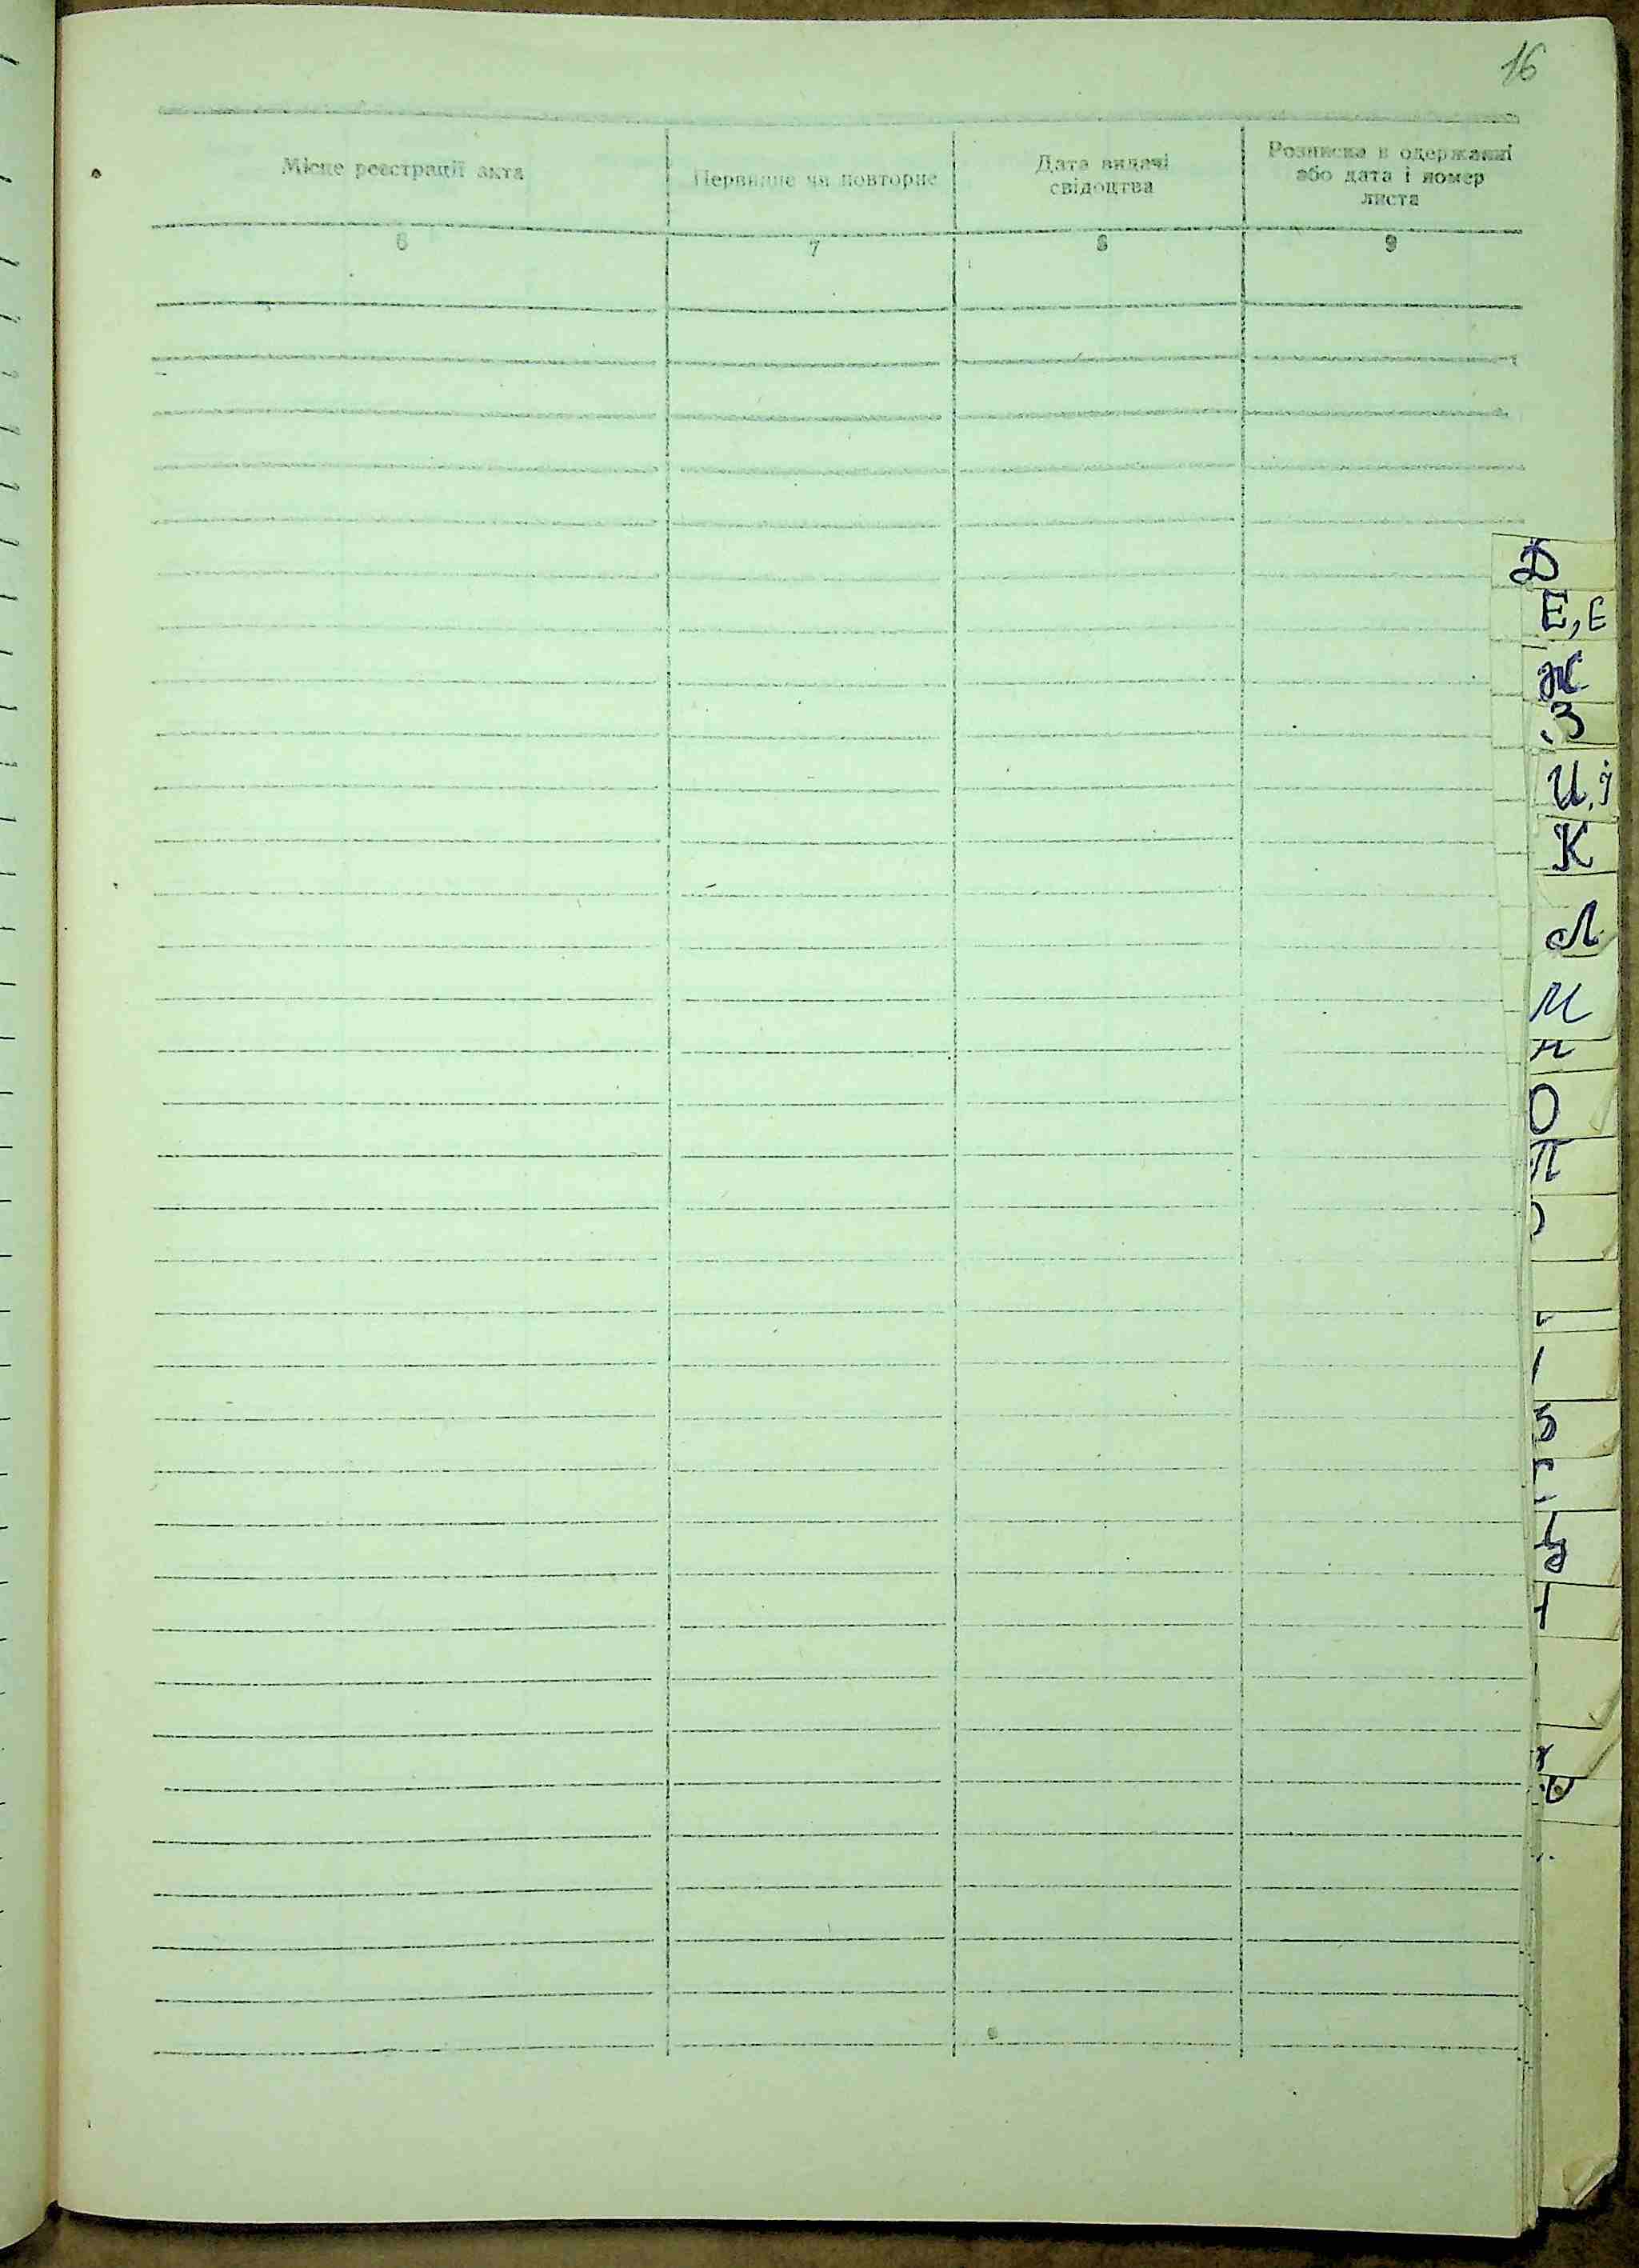 16
Місце реєстрації акта
Первинне чи повторне
Дата видачі
свідоцтва
Розписка в одержанні
або дата і номер
листа
6
7
8
9
Д
Е, Є
Ж
З
И, І
К
Л
М
Н
О
П